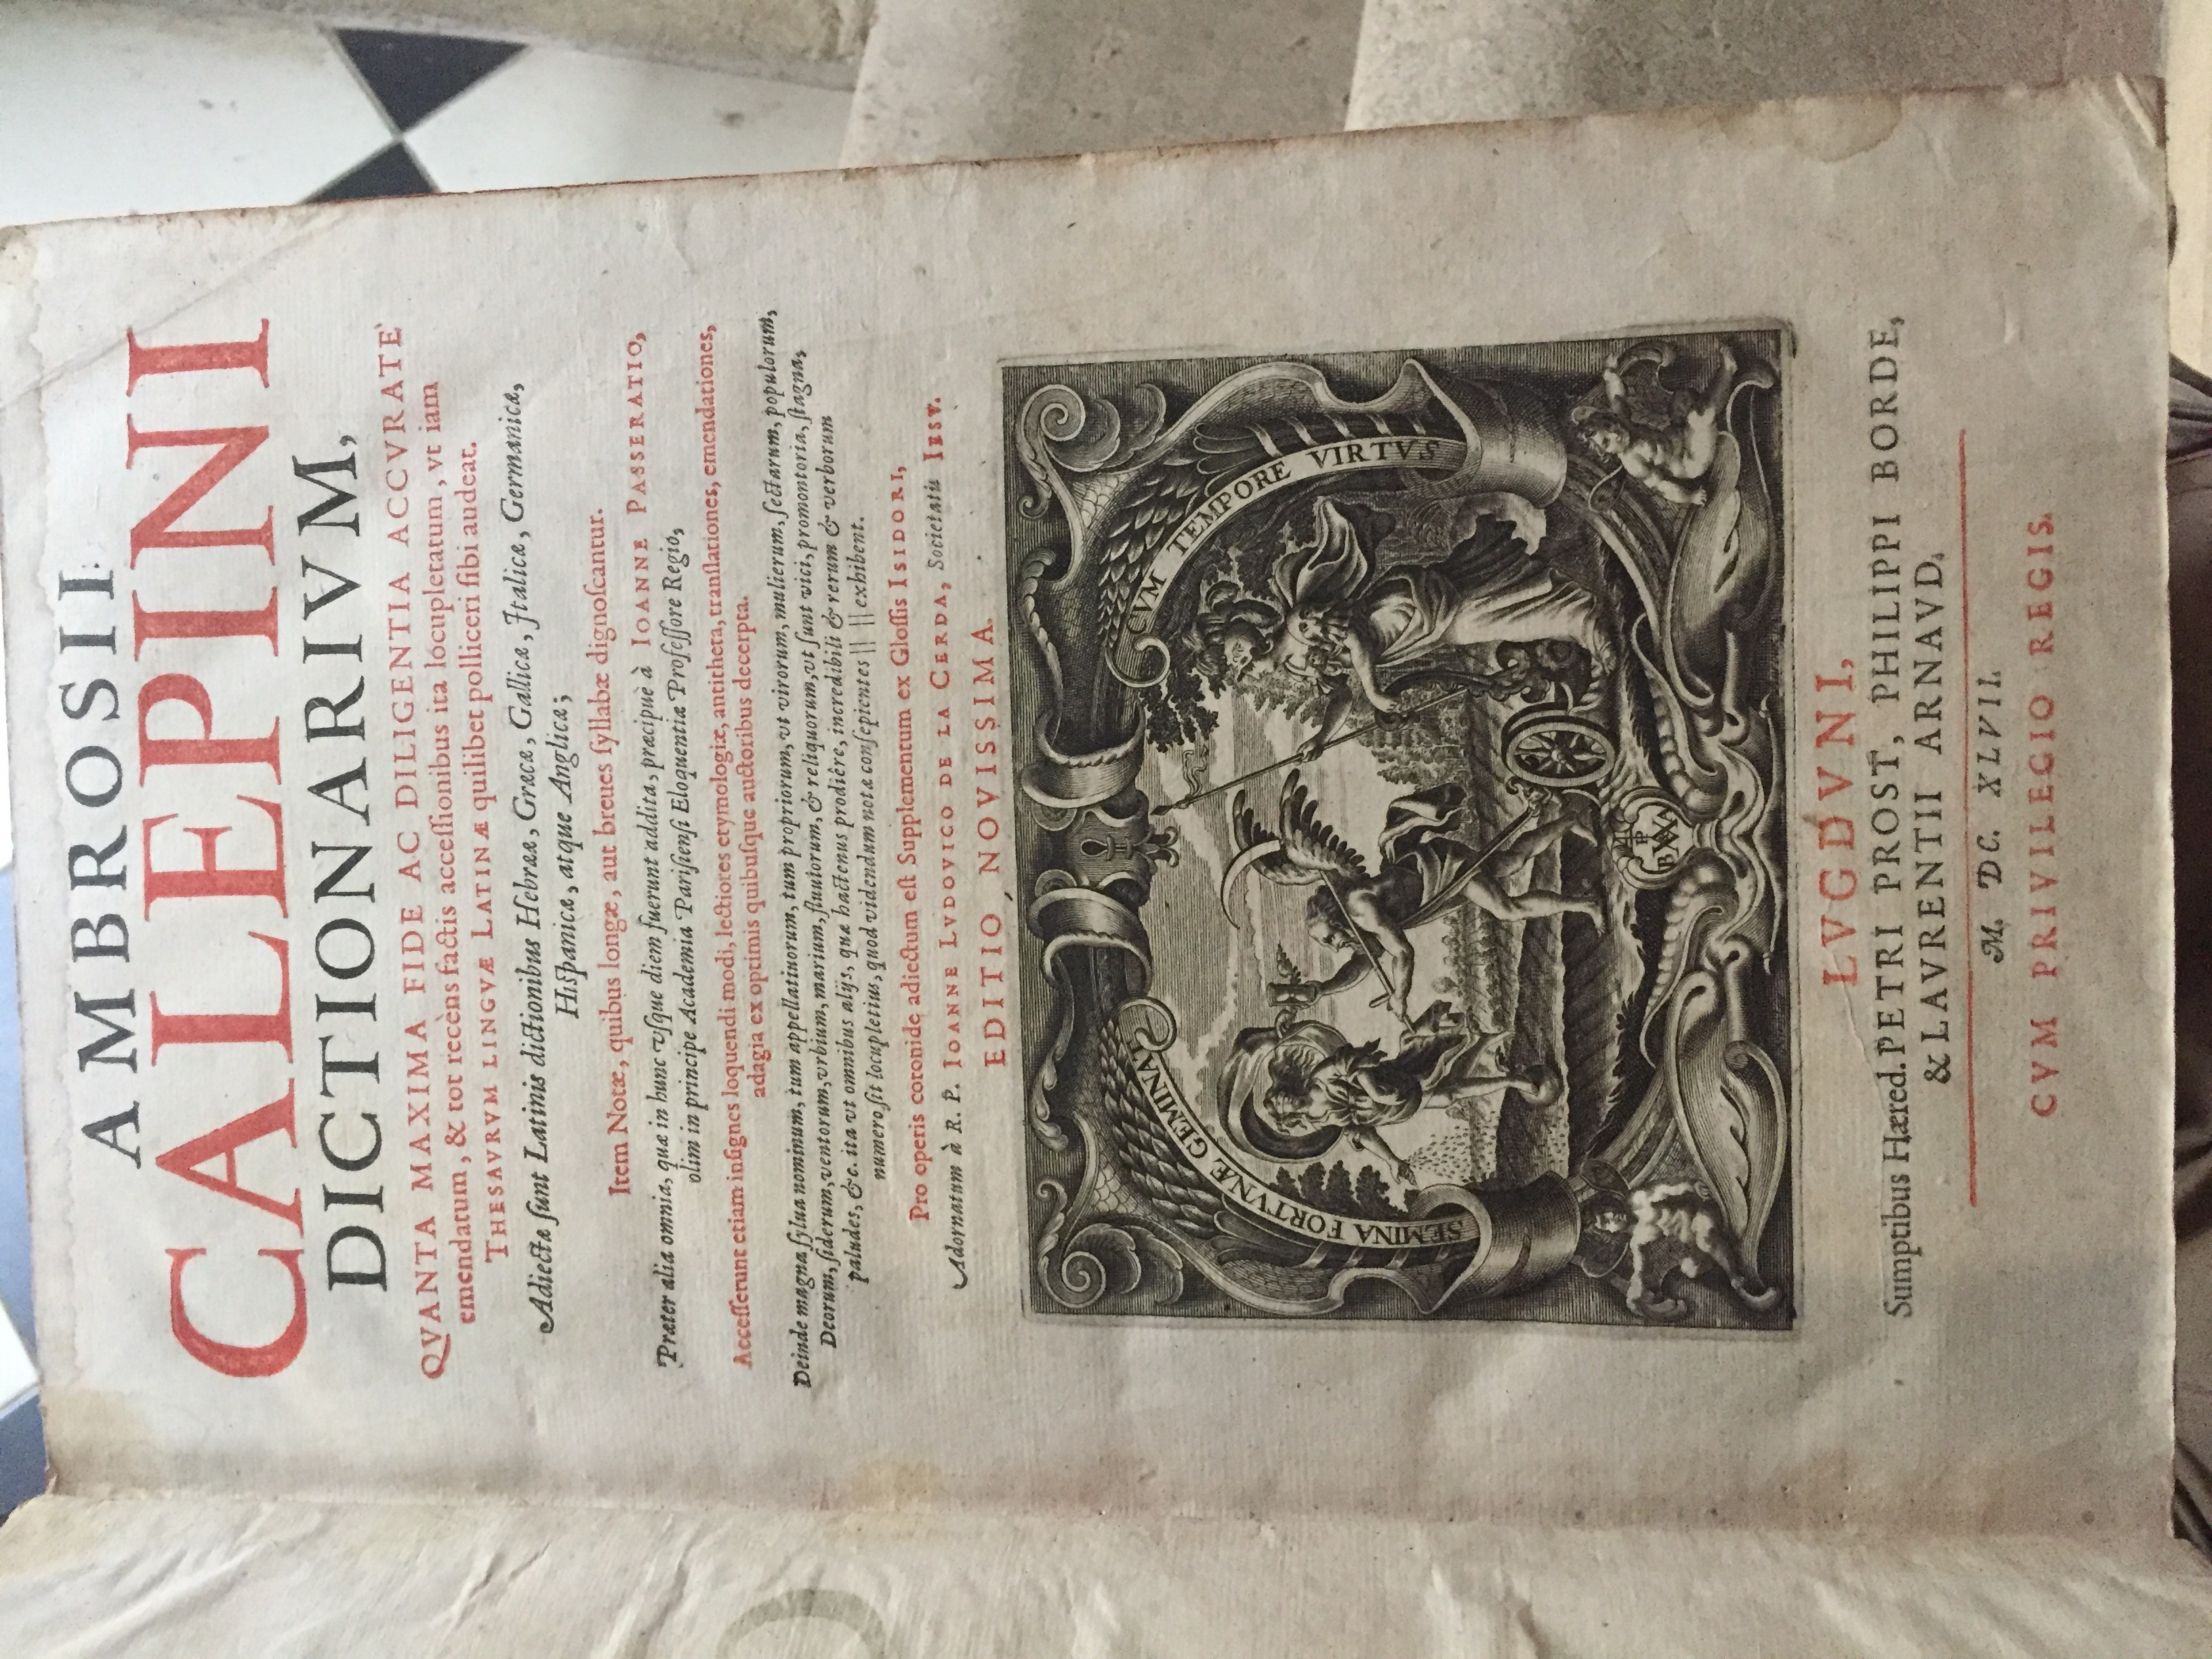 AMBROSII
CALEPINI
DICTIONARIVM,
QVANTA MAXIMA FIDE AC DILIGENTIA ACCVRATE
emendatum, & tot recèns factis accessionibus ita locupletatum, vt iam
THESAVRVM LINGVÆ LATINÆ quilibet polliceri sibi audeat.
Adiectæ sunt Latinis dictionibus Hebrææ, Græcæ, Gallicæ, Italicæ, Germanicæ,
Hispanicæ, atque Anglicæ;
Item Notæ, quibus longæ, aut breues syllabæ dignoscantur.
Præter alia omnia, quæ in hunc vsque diem fuerunt addita, præcipuè à IOANNE PASSERATIO,
olim in principe Academia Parisiensi Eloquentiæ Professore Regio,
Accesserunt etiam insignes loquendi modi, lectiores etymologiæ, antitheta, translationes, emendationes,
adagia ex optimis quibusque auctoribus decerpta.
Deinde magna sylua nominum, tum appellatiuorum, tum propriorum, vt virorum, mulierum, sectarum, populorum,
Deorum, siderum, ventorum, vrbium, marium, fluuiorum, & reliquorum, vt sunt vici, promontoria, stagna,
paludes, &c. ita vt omnibus alijs, quæ hactenus prodiêre, incredibili & rerum & verborum
numero sit locupletius, quod videndum nota consepientes || || exhibent.
Pro operis coronide adiectum est Supplementum ex Glossis ISIDORI,
Adornatum à R. P. IOANNE LVDOVICO DE LA CERDA, Societatis IESV.
EDITIO NOVISSIMA.
SEMINA FORTVNÆ GEMINAT
CVM TEMPORE VIRTVS
LVGDVNI,
Sumptibus Hæred. PETRI PROST, PHILIPPI BORDE,
& LAVRENTII ARNAVD.
M. DC. XLVII.
CVM PRIVILEGIO REGIS.